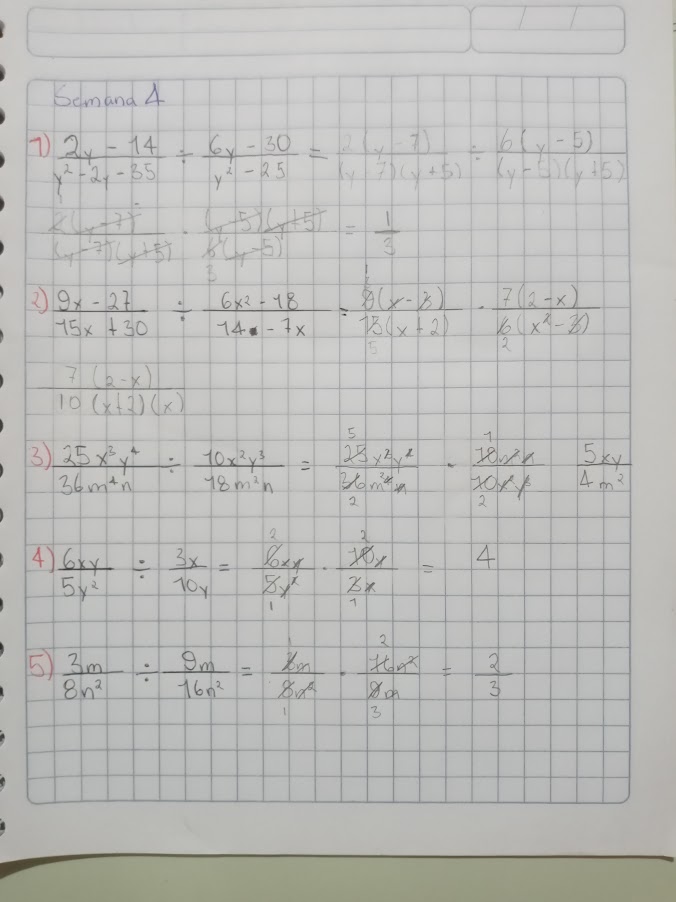 Semana 4
1) (2y - 14)/(y² - 2y - 35) ÷ (6y - 30)/(y² - 25) = 2(y - 7)/(y - 7)(y + 5) ÷ 6(y - 5)/(y - 5)(y + 5)
2(y - 7)/(y - 7)(y + 5) · (y - 5)(y + 5)/6(y - 5) 3 = 1/3
2) (9x - 27)/(15x + 30) ÷ (6x² - 18)/(14 - 7x) = 9(x - 3)/15(x + 2) 5 · 7(2 - x)/6(x² - 3) 2
7(2 - x)/10(x + 2)(x)
3) 25x³y⁴/36m⁴n ÷ 10x²y³/18m²n = 5 25x³y⁴/36m⁴n 2 · 1 18m²n/10x²y³ 2 5xy/4m²
4) 6xy/5y² ÷ 3x/10y = 2 6xy/5y² 1 · 2 10y/3x 1 = 4
5) 3m/8n² ÷ 9m/16n² = 1 3m/8n² 1 · 2 16n²/9m 3 = 2/3